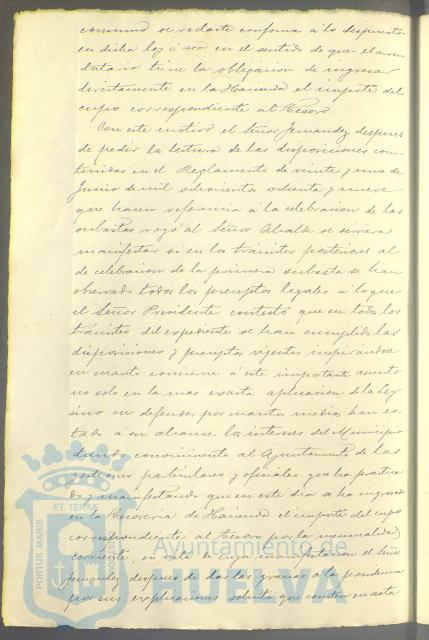 consumo se redacte conforme á lo dispuesto
en dicha ley ó sea en el sentido de que el arren
datario tiene la obligacion de ingresar
directamente en la Hacienda el importe del
cupo correspondiente al Tesoro.
Con este motivo el Señor Fernandez despues
de pedir la lectura de las disposiciones con-
tenidas en el Reglamento de veinte y uno de
Junio de mil ochocientos ochenta y nueve
que hacen referencia á la celebracion de las
subastas rogó al Señor Alcalde se sirviera
manifestar si en los trámites posteriores al
de celebracion de la primera subasta se han
observado todos los preceptos legales á lo que
el Señor Presidente contestó que en todos los
trámites del expediente se han cumplido las
disposiciones y preceptos vigentes inspirandose
en cuanto conviene á este importante asunto
no solo en la mas exacta aplicacion de la Ley
sino en defender por cuantos medios han es
tado á su alcance los intereses del Municipio
dando conocimiento al Ayuntamiento de las
gestiones particulares y oficiales que ha practica
do y manifestando que en este dia se ha ingresado
en la Tesoreria de Hacienda el importe del cupo
correspondiente al Tesoro por la mensualidad
corriente, en vista de cuya manifestacion el Señor
Fernandez despues de dar las gracias á la presidencia
por sus explicaciones solicita que consten en acta
PORTUS MARIS
ET TERRAE
Ayuntamiento de
HUELVA